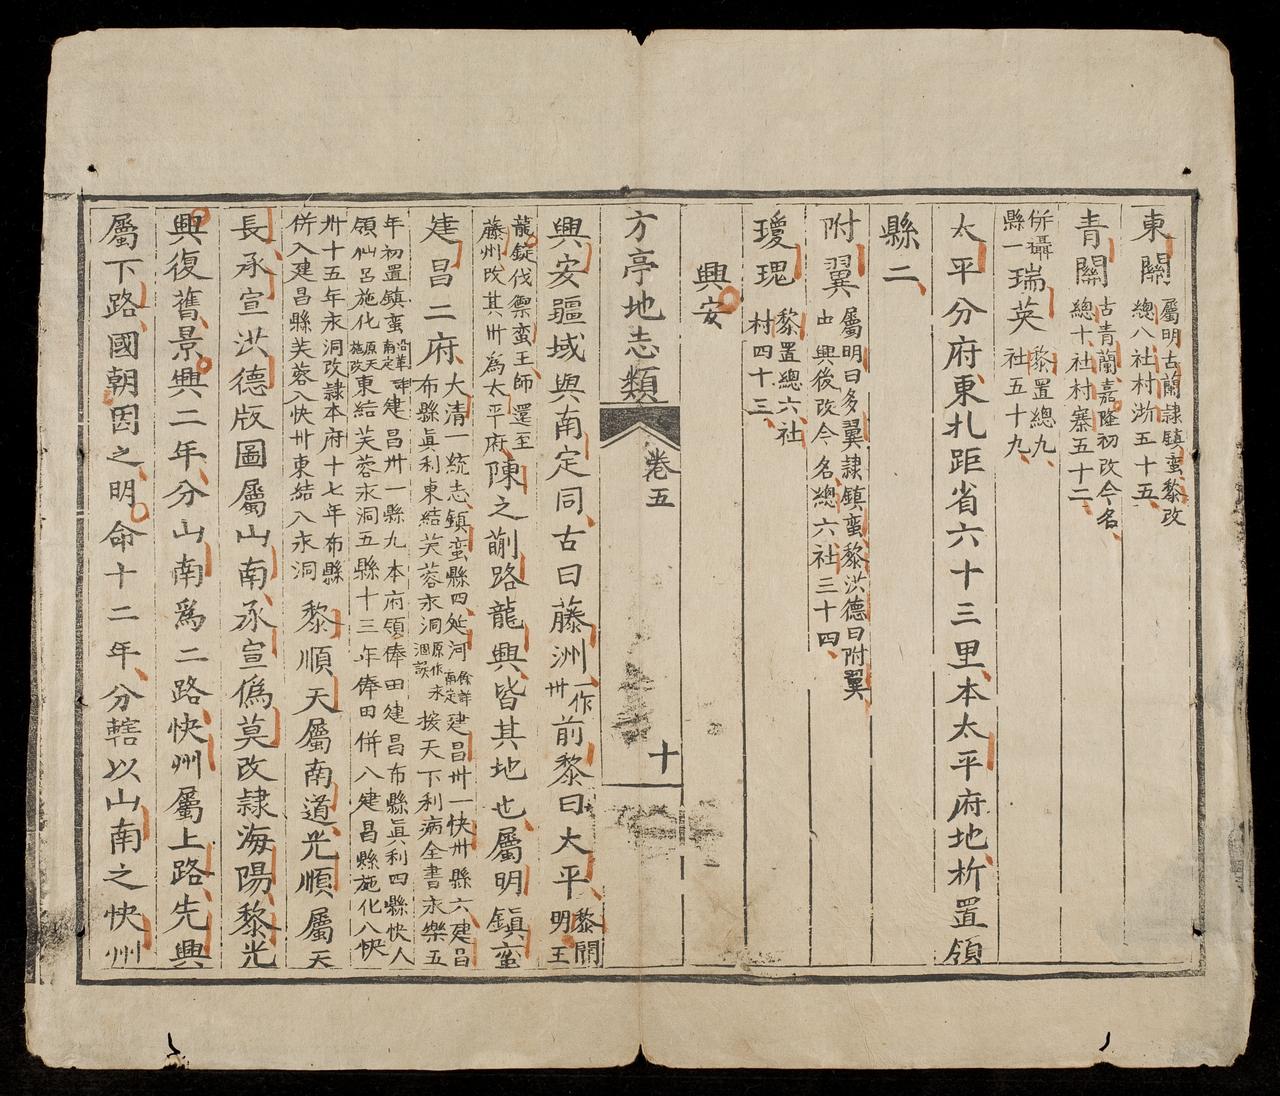 東關屬明古蘭隸鎮蛮黎改總八社村㳥五十五
青關古青蘭嘉隆初改今名總十社村寨五十二
併䯅縣一瑞英黎置總九社五十九
太平分府東札距省六十三里本太平府地析置領
縣二
附翼屬明曰多翼隸鎮蛮黎洪德曰附翼中興後改今名總六社三十四
瓊瑰黎置總六社村四十三
興安
方亭地志類 卷五 十
興安疆域與南定同古曰藤洲一作州前黎曰太平黎開明王
龍錠伐禦蛮王師還至藤州改其州為太平府陳之前路龍興皆其地也屬明鎮蛮
建昌二府大清一統志鎮蛮縣四延河餘詳南定建昌州一快州縣六建昌布縣眞利東結芙蓉永洞原作永涸誤按天下利病全書永樂五
年初置鎮蛮沿革詳南定建昌州一縣九本府領俸田建昌布縣眞利四縣快人領仙呂施化原天施改東結芙蓉永洞五縣十三年俸田併入建昌縣施化入快
州十五年永洞改隸本府十七年布縣併入建昌縣芙蓉入快州東結入永洞黎順天屬南道光順屬天
長承宣洪德版圖屬山南承宣偽莫改隸海陽黎光
興復舊景興二年分山南爲二路快州屬上路先興
屬下路國朝因之明命十二年分轄以山南之快州